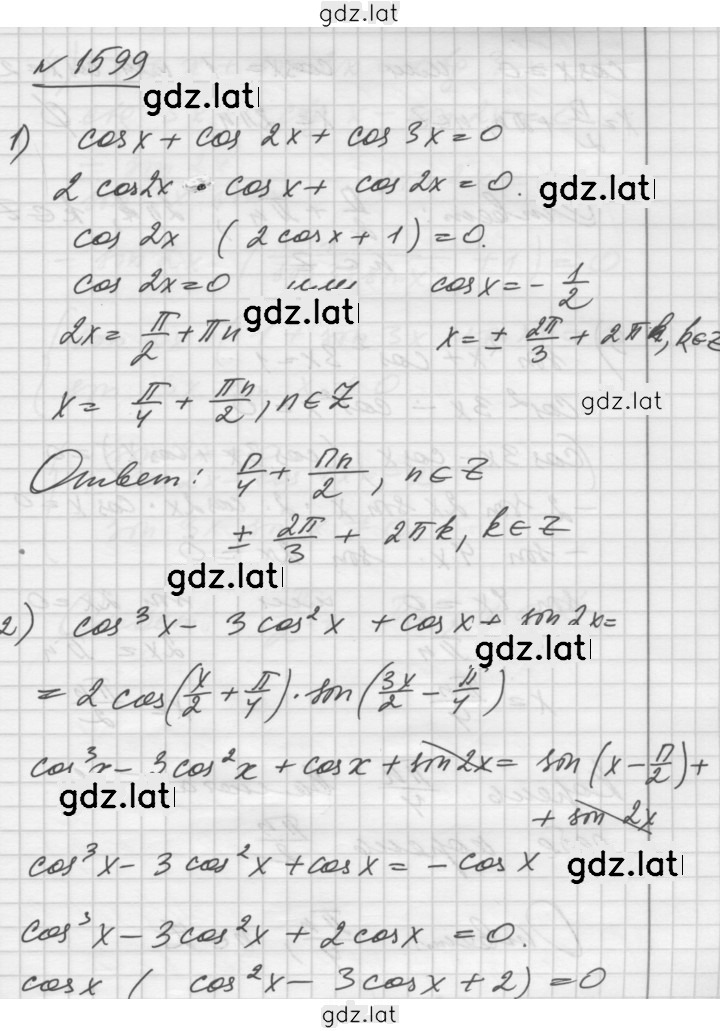 gdz.lat
№ 1599
gdz.lat
1) cos x + cos 2x + cos 3x = 0
2 cos2x · cos x + cos 2x = 0.
gdz.lat
cos 2x (2 cos x + 1) = 0.
cos 2x = 0 или cos x = - 1/2
gdz.lat
2x = π/2 + πn x = ± 2π/3 + 2πk, k ∈ Z
x = π/4 + πn/2, n ∈ Z
gdz.lat
Ответ: π/4 + πn/2, n ∈ Z
± 2π/3 + 2πk, k ∈ Z
gdz.lat
2) cos³x - 3cos²x + cos x + sin 2x =
gdz.lat
= 2 cos(x/2 + π/4) · sin(3x/2 - π/4)
cos³x - 3cos²x + cos x + sin 2x = sin(x - π/2) +
gdz.lat
+ sin 2x
cos³x - 3cos²x + cos x = - cos x
gdz.lat
cos³x - 3cos²x + 2cos x = 0.
cos x ( cos²x - 3cos x + 2) = 0
gdz.lat